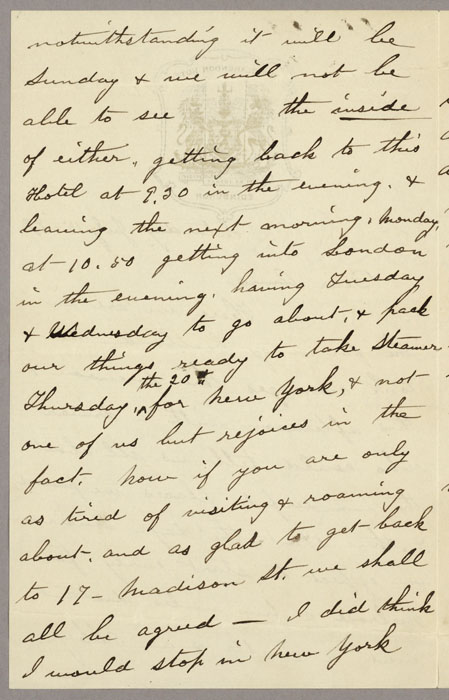 notwithstanding it will be
Sunday & we will not be
able to see the inside
of either, getting back to this
Hotel at 9.30 in the evening. &
leaving the next morning, Monday,
at 10.50 getting into London
in the evening, having Tuesday
& Wednesday to go about, & pack
our things ready to take Steamer
the 20th
Thursday, for New York, & not
one of us but rejoices in the
fact. Now if you are only
as tired of visiting & roaming
about, and as glad to get back
to 17- Madison St. we shall
all be agreed — I did think
I would stop in New York